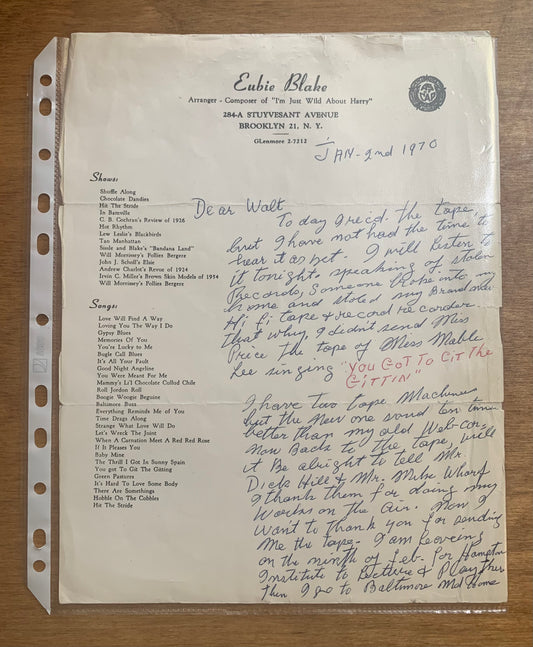 Eubie Blake
Arranger - Composer of "I'm Just Wild About Harry"
284-A STUYVESANT AVENUE
BROOKLYN 21, N. Y.
GLenmore 2-7212
JAN-2nd 1970
Shows:
Shuffle Along
Chocolate Dandies
Hit The Stride
In Bamville
C. B. Cochran's Review of 1926
Hot Rhythm
Lew Leslie's Blackbirds
Tan Manhattan
Sissle and Blake's "Bandana Land"
Will Morrissey's Follies Bergere
John J. Scholl's Elsie
Andrew Charlot's Revue of 1924
Irvin C. Miller's Brown Skin Models of 1954
Will Morrissey's Follies Bergere
Songs:
Love Will Find A Way
Loving You The Way I Do
Gypsy Blues
Memories Of You
You're Lucky to Me
Bugle Call Blues
It's All Your Fault
Good Night Angeline
You Were Meant For Me
Mammy's Li'l Chocolate Cullud Chile
Roll Jordon Roll
Boogie Woogie Beguine
Baltimore Buss
Everything Reminds Me of You
Time Drags Along
Strange What Love Will Do
Let's Wreck The Joint
When A Carnation Meet A Red Red Rose
If It Pleases You
Baby Mine
The Thrill I Got In Sunny Spain
You got To Git The Gitting
Green Pastures
It's Hard To Love Some Body
There Are Somethings
Hobble On The Cobbles
Hit The Stride
Dear Walt
To day I recd. the tape,
but I have not had the time to
hear it as yet. I will listen to
it tonight. speaking of stolen
Records, Someone broke into my
home and stoled my Brand new
Hi fi tape & record recorder
that why, I didn't send Miss
Price the tape of Miss Mable
Lee singing "YOU GOT TO GIT THE
GITTIN"
I have two tape Machines
but the New one sound ten times
better than my old Web-cor-
Now Back to the tape, will
it Be alright to tell Mr.
Dick Hill & Mr. Mike Wharf
I thank them for doing my
Works on the air. Now I
Want to thank you for sending
Me the tape. I am leaveing
on the month of Feb. for Hampton
Institute to Lecture & Play there
then I go to Baltimore Md Home